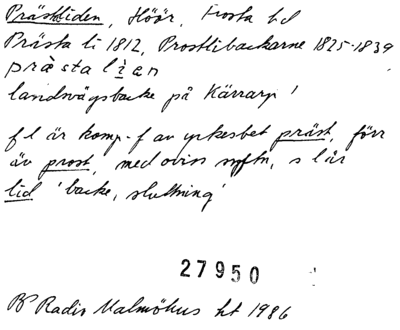 Prästliden, Höör, Frosta hd
Prästa li 1812, Prostlibackarne 1825-1839
præsta lian
landsvägsbacke på Kärrarp!
f l är komp-f av yrkesbet präst, förr
äv prost, med oviss syftn, s l är
lid 'backe, sluttning'
27950
Radio Malmöhus ht 1986